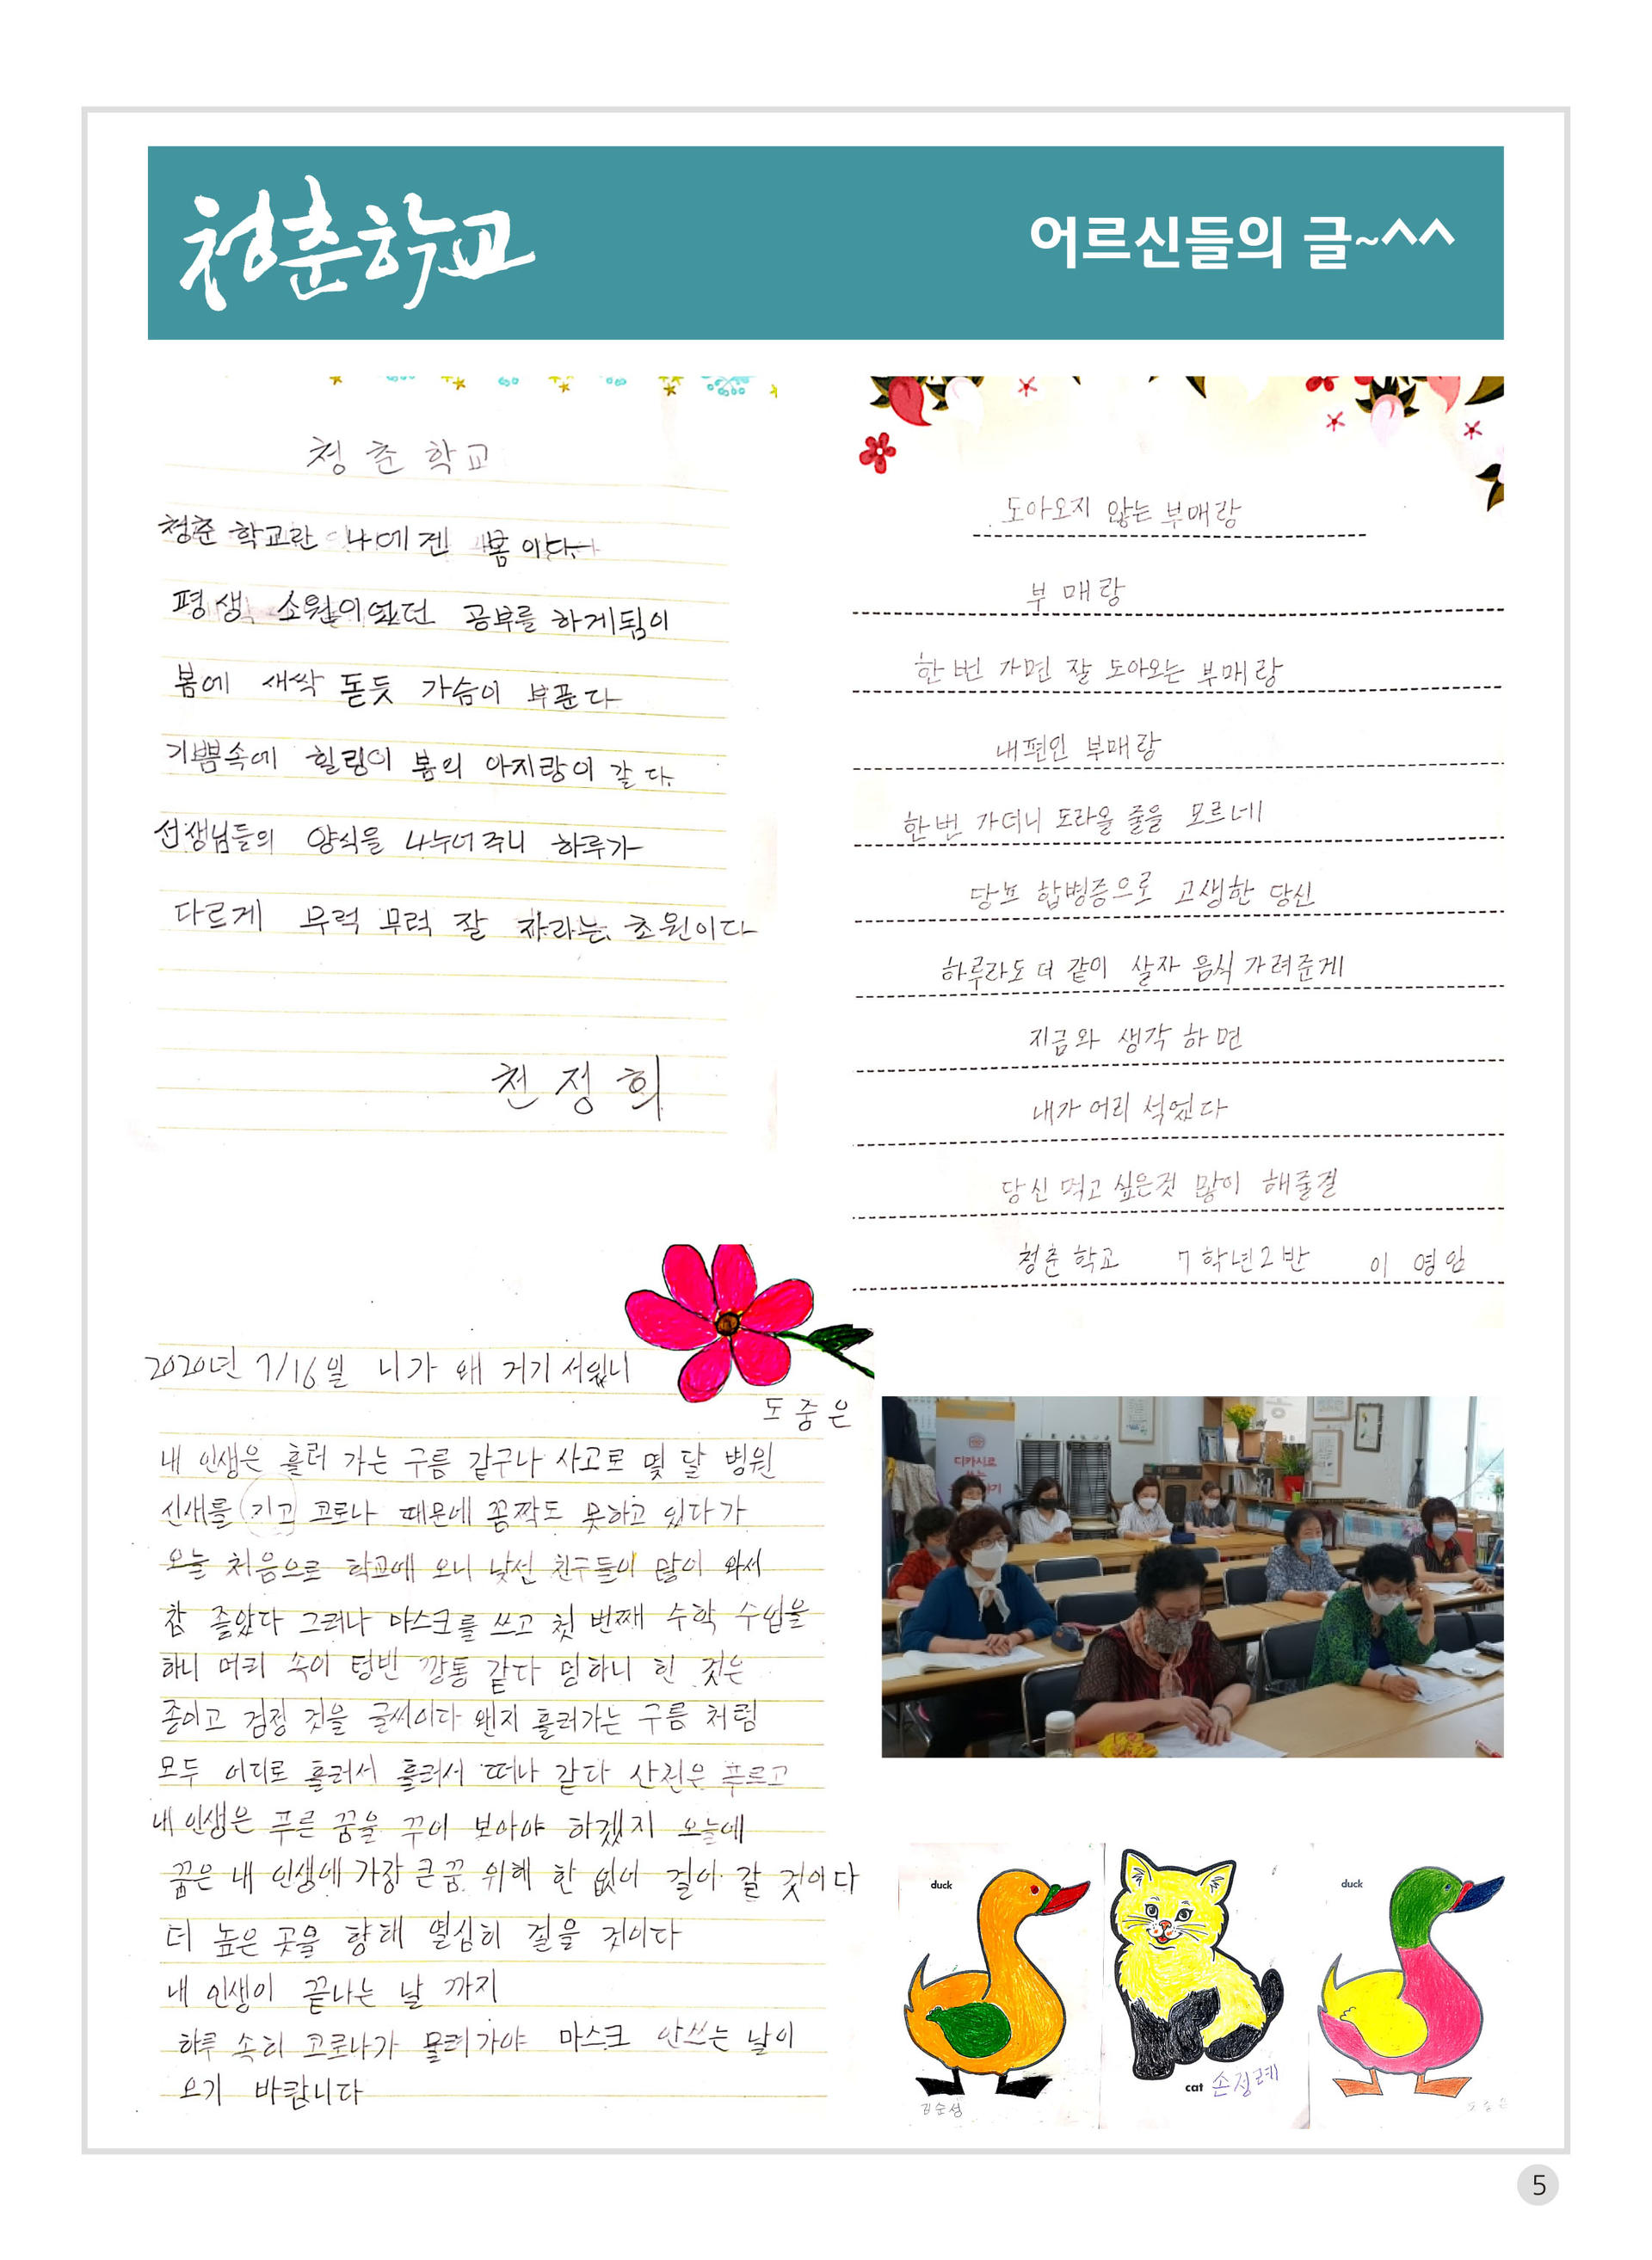 청춘학교
어르신들의 글~^^
청 춘 학교
청춘 학교란 나에겐 봄이다
평생 소원이였던 공부를 하게됨이
봄에 새싹 돋듯 가슴이 부푼다
기쁨속에 힐링이 봄의 아지랑이 갈다
선생님들의 양식을 나누너주니 하루가
다르게 무럭 무럭 잘 자라는 초원이다
천정희
도아오지 않는 부매랑
부매랑
한번 가면 잘 도아오는 부매랑
내편인 부매랑
한번 가더니 도라올 줄을 모르네
당뇨 합병증으로 고생한 당신
하루라도 더 같이 살자 음식 가려준게
지금와 생각 하면
내가 어리 석었다
당신 먹고 싶은것 많이 해줄걸
청춘 학교 7학년2반 이영임
2020년 7/16일 니가 왜 거기 서있니
도중은
내 인생은 흘러 가는 구름 같구나 사고로 몇 달 병원
신새를 기고 코로나 때문에 꼼짝도 못하고 있다가
오늘 처음으로 학교에 오니 낯선 친구들이 많이 와서
참 좋았다 그러나 마스크를 쓰고 첫 번째 수학 수업을
하니 머리 속이 텅빈 깡통 같다 멍하니 힌 것은
종이고 검정 것을 글씨이다 왠지 흘러가는 구름 처럼
모두 어디로 흘러서 흘러서 떠나 같다 산천은 푸르고
내 인생은 푸른 꿈을 꾸어 보아야 하겠지 오늘에
꿈은 내 인생에 가장 큰꿈 위해 한 없어 걸어 갈 것이다
더 높은 곳을 향해 열심히 걸을 것이다
내 인생이 끝나는 날 까지
하루 속히 코로나가 물러가야 마스크 안쓰는 날이
오기 바랍니다
디카시로
duck
김순성
cat 손정례
duck
5